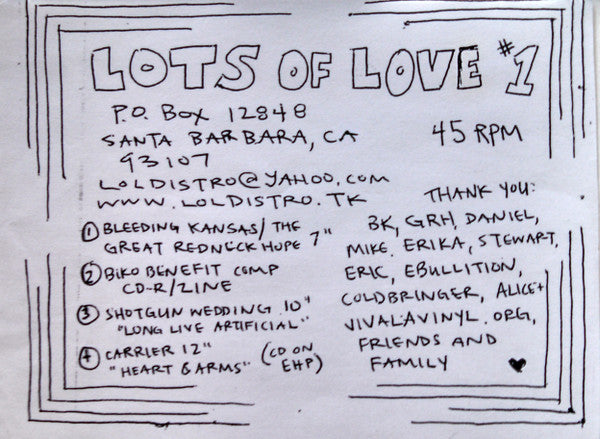 LOTS OF LOVE #1
P.O. BOX 12848
SANTA BARBARA, CA
93107
LOLDISTRO@YAHOO.COM
WWW.LOLDISTRO.TK
45 RPM
① BLEEDING KANSAS/THE
GREAT REDNECK HOPE 7"
② BIKO BENEFIT COMP
CD-R/ZINE
③ SHOTGUN WEDDING 10"
"LONG LIVE ARTIFICIAL"
④ CARRIER 12"
"HEART & ARMS" (CD ON
EHP)
THANK YOU:
BK, GRH, DANIEL,
MIKE. ERIKA, STEWART,
ERIC, EBULLITION,
COLDBRINGER, ALICE+
VIVALAVINYL.ORG,
FRIENDS AND
FAMILY ♥